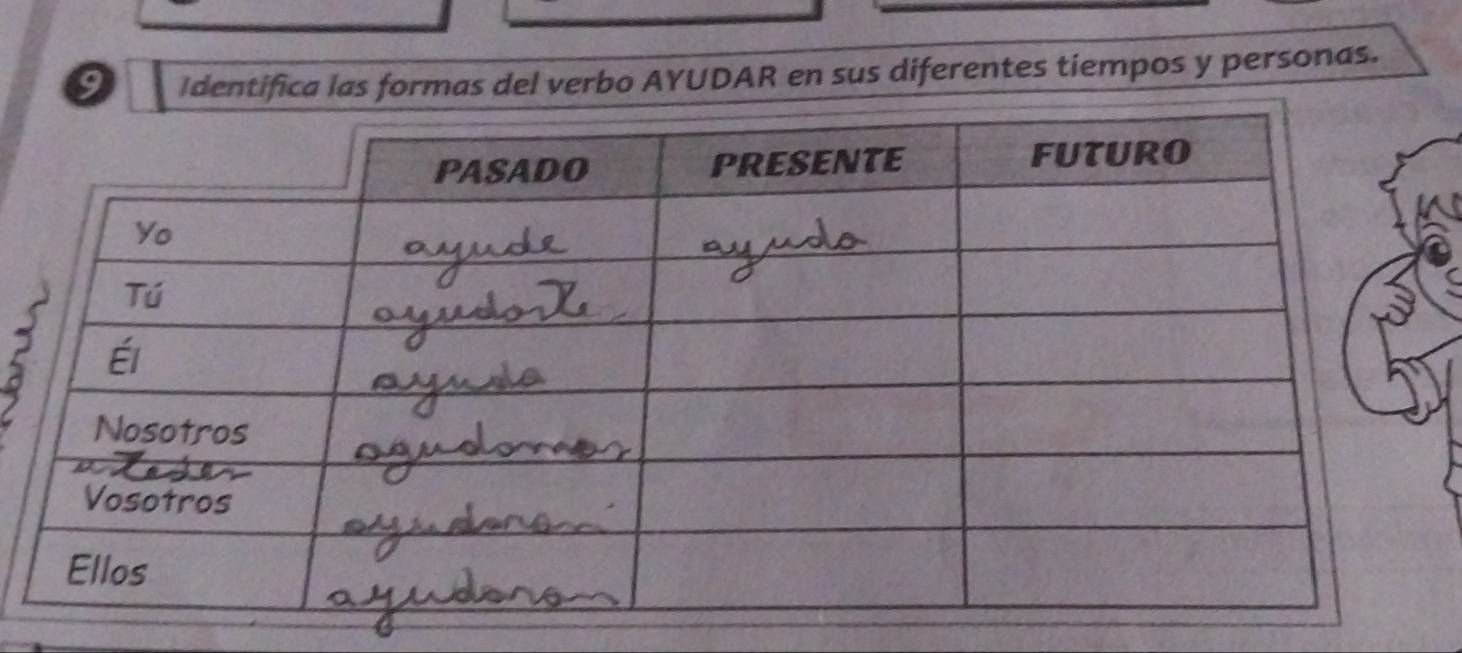 9 Identifica las formas del verbo AYUDAR en sus diferentes tiempos y personas.
PASADO PRESENTE FUTURO
Yo ayude ayudo
Tú ayudaste
Él ayudo
Nosotros agudamos
ustedes
Vosotros ayudaron
Ellos ayudaron